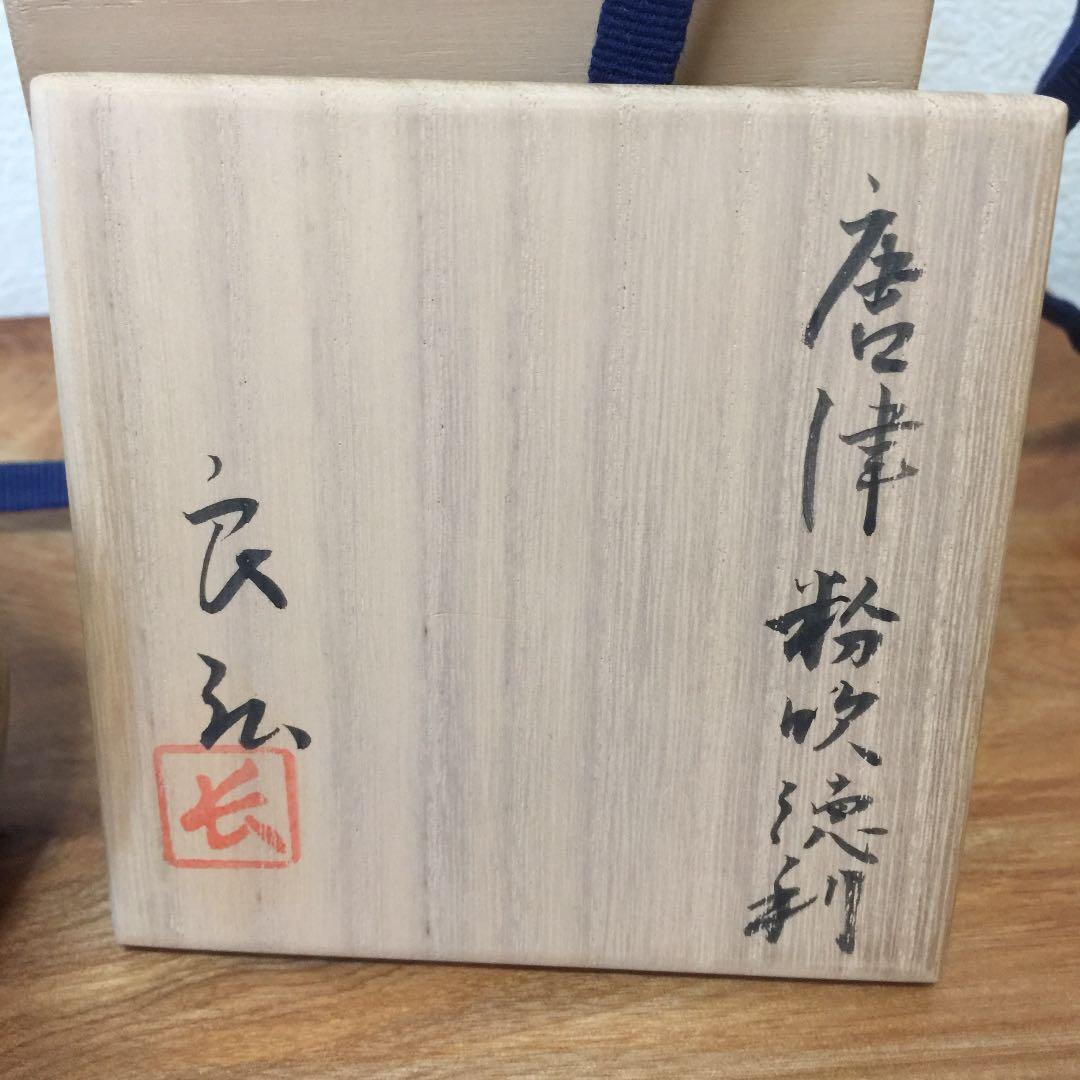 唐津 粉吹徳利
良弘
长